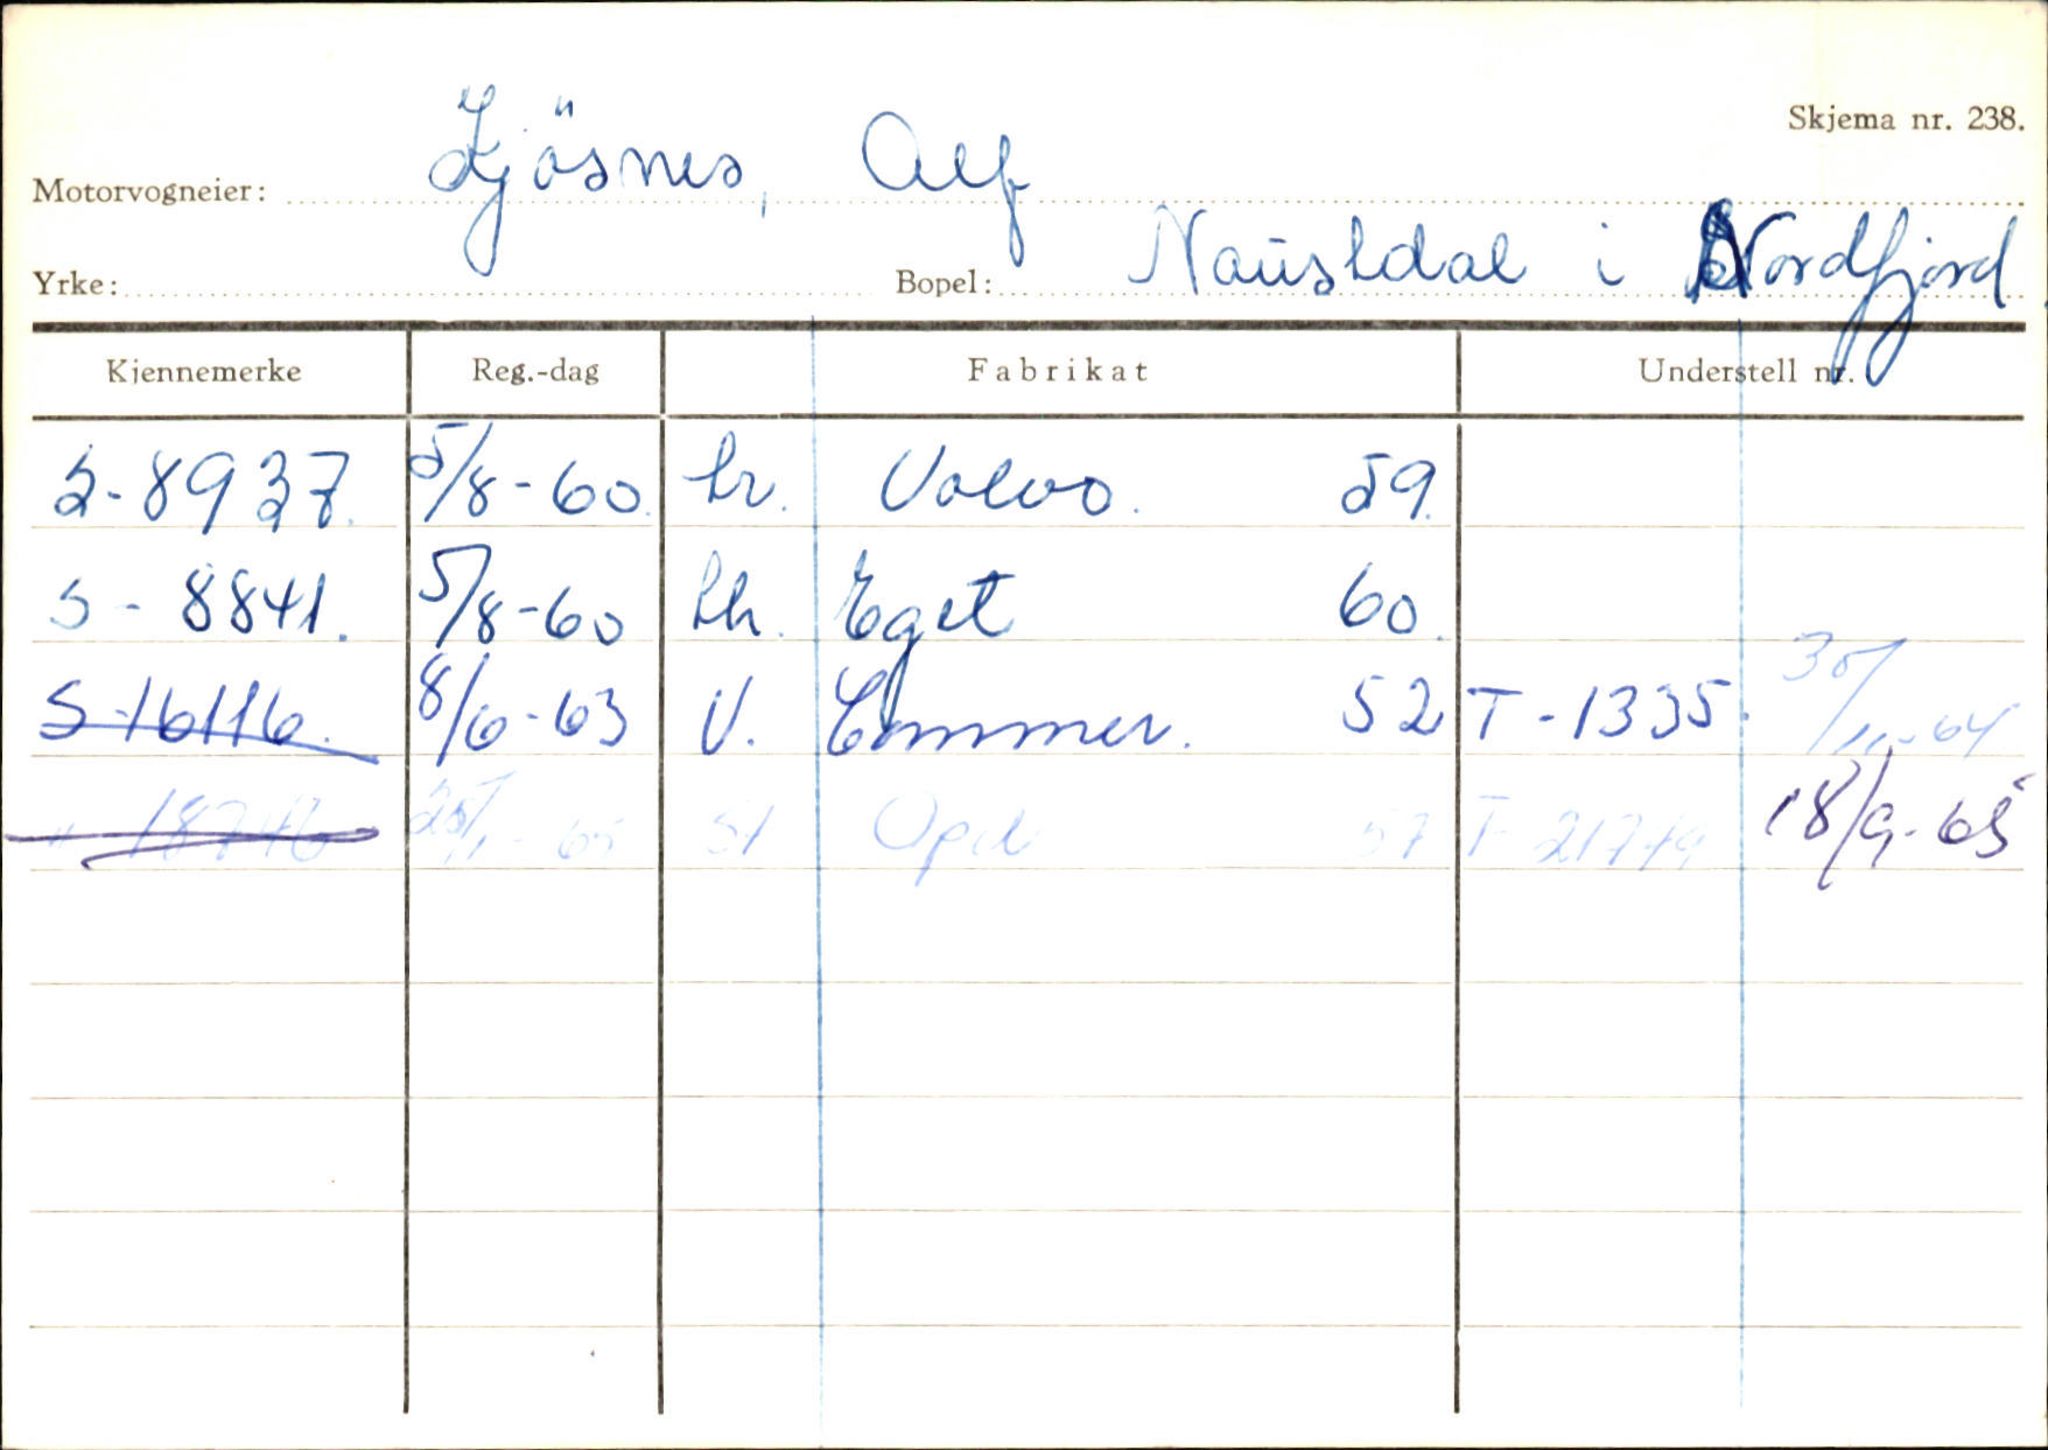 Skjema nr. 238.
Motorvogneier: Ljösnes, Alf
Yrke: Bopel: Naustdal i Nordfjord
Kjennemerke Reg.-dag Fabrikat Understell nr.
S-8937. 5/8-60. Lr. Volvo. 59.
S-8841. 5/8-60 Lh. Eget 60.
S-16116. 8/6-63 V. Commer. 52 T-1335. 30/11-64
" 18746 25/1-65 St Opel 57 18/9-65